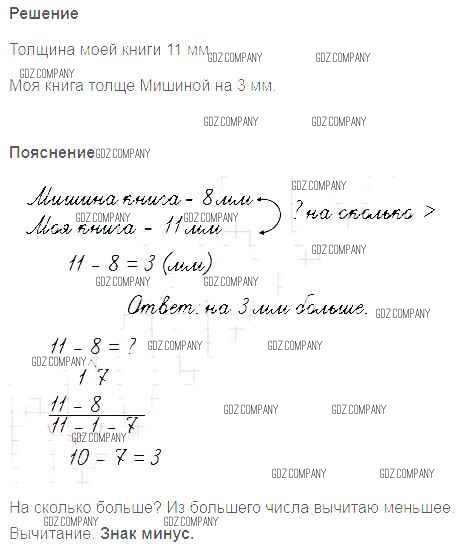 Решение
Толщина моей книги 11 мм
GDZ.COMPANY GDZ.COMPANY
GDZ.COMPANY
Моя книга толще Мишиной на 3 мм.
GDZ.COMPANY GDZ.COMPANY
Пояснение GDZ.COMPANY
Мишина книга - 8 мм
GDZ.COMPANY
? на сколько >
GDZ.COMPANY GDZ.COMPANY
Моя книга - 11 мм
GDZ.COMPANY
11 - 8 = 3 (мм)
GDZ.COMPANY GDZ.COMPANY
Ответ: на 3 мм больше.
GDZ.COMPANY
11 - 8 = ?
GDZ.COMPANY GDZ.COMPANY
GDZ.COMPANY
1 7
11 - 8
GDZ.COMPANY GDZ.COMPANY
11 - 1 - 7
GDZ.COMPANY
10 - 7 = 3
GDZ.COMPANY GDZ.COMPANY
На сколько больше? Из большего числа вычитаю меньшее.
GDZ.COMPANY GDZ.COMPANY
Вычитание. Знак минус.